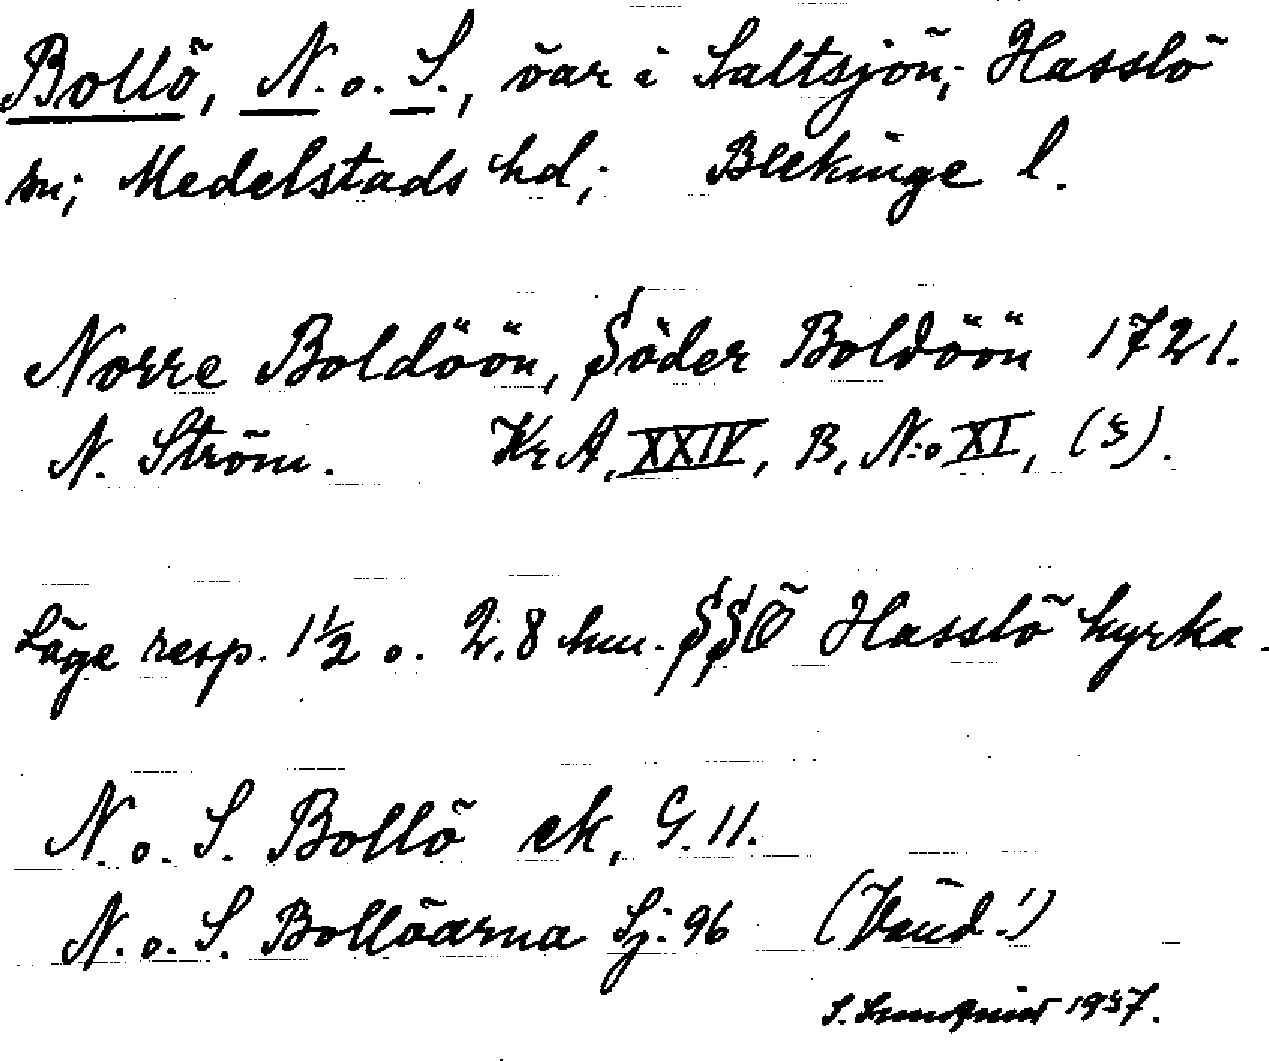 Bollö, N. o. S., öar i Saltsjön; Hasslö
sn; Medelstads hd; Blekinge l.
Norre Boldöön, Söder Boldöön 1721.
N. Ström. Kr A, XXIV, B, N:o XI, (s).
Läge resp. 1½ o. 2,8 km. SSÖ Hasslö kyrka.
N. o. S. Bollö ek, G. 11.
N. o. S. Bollöarna Sj. 96 (Vänd!)
S. 1937.